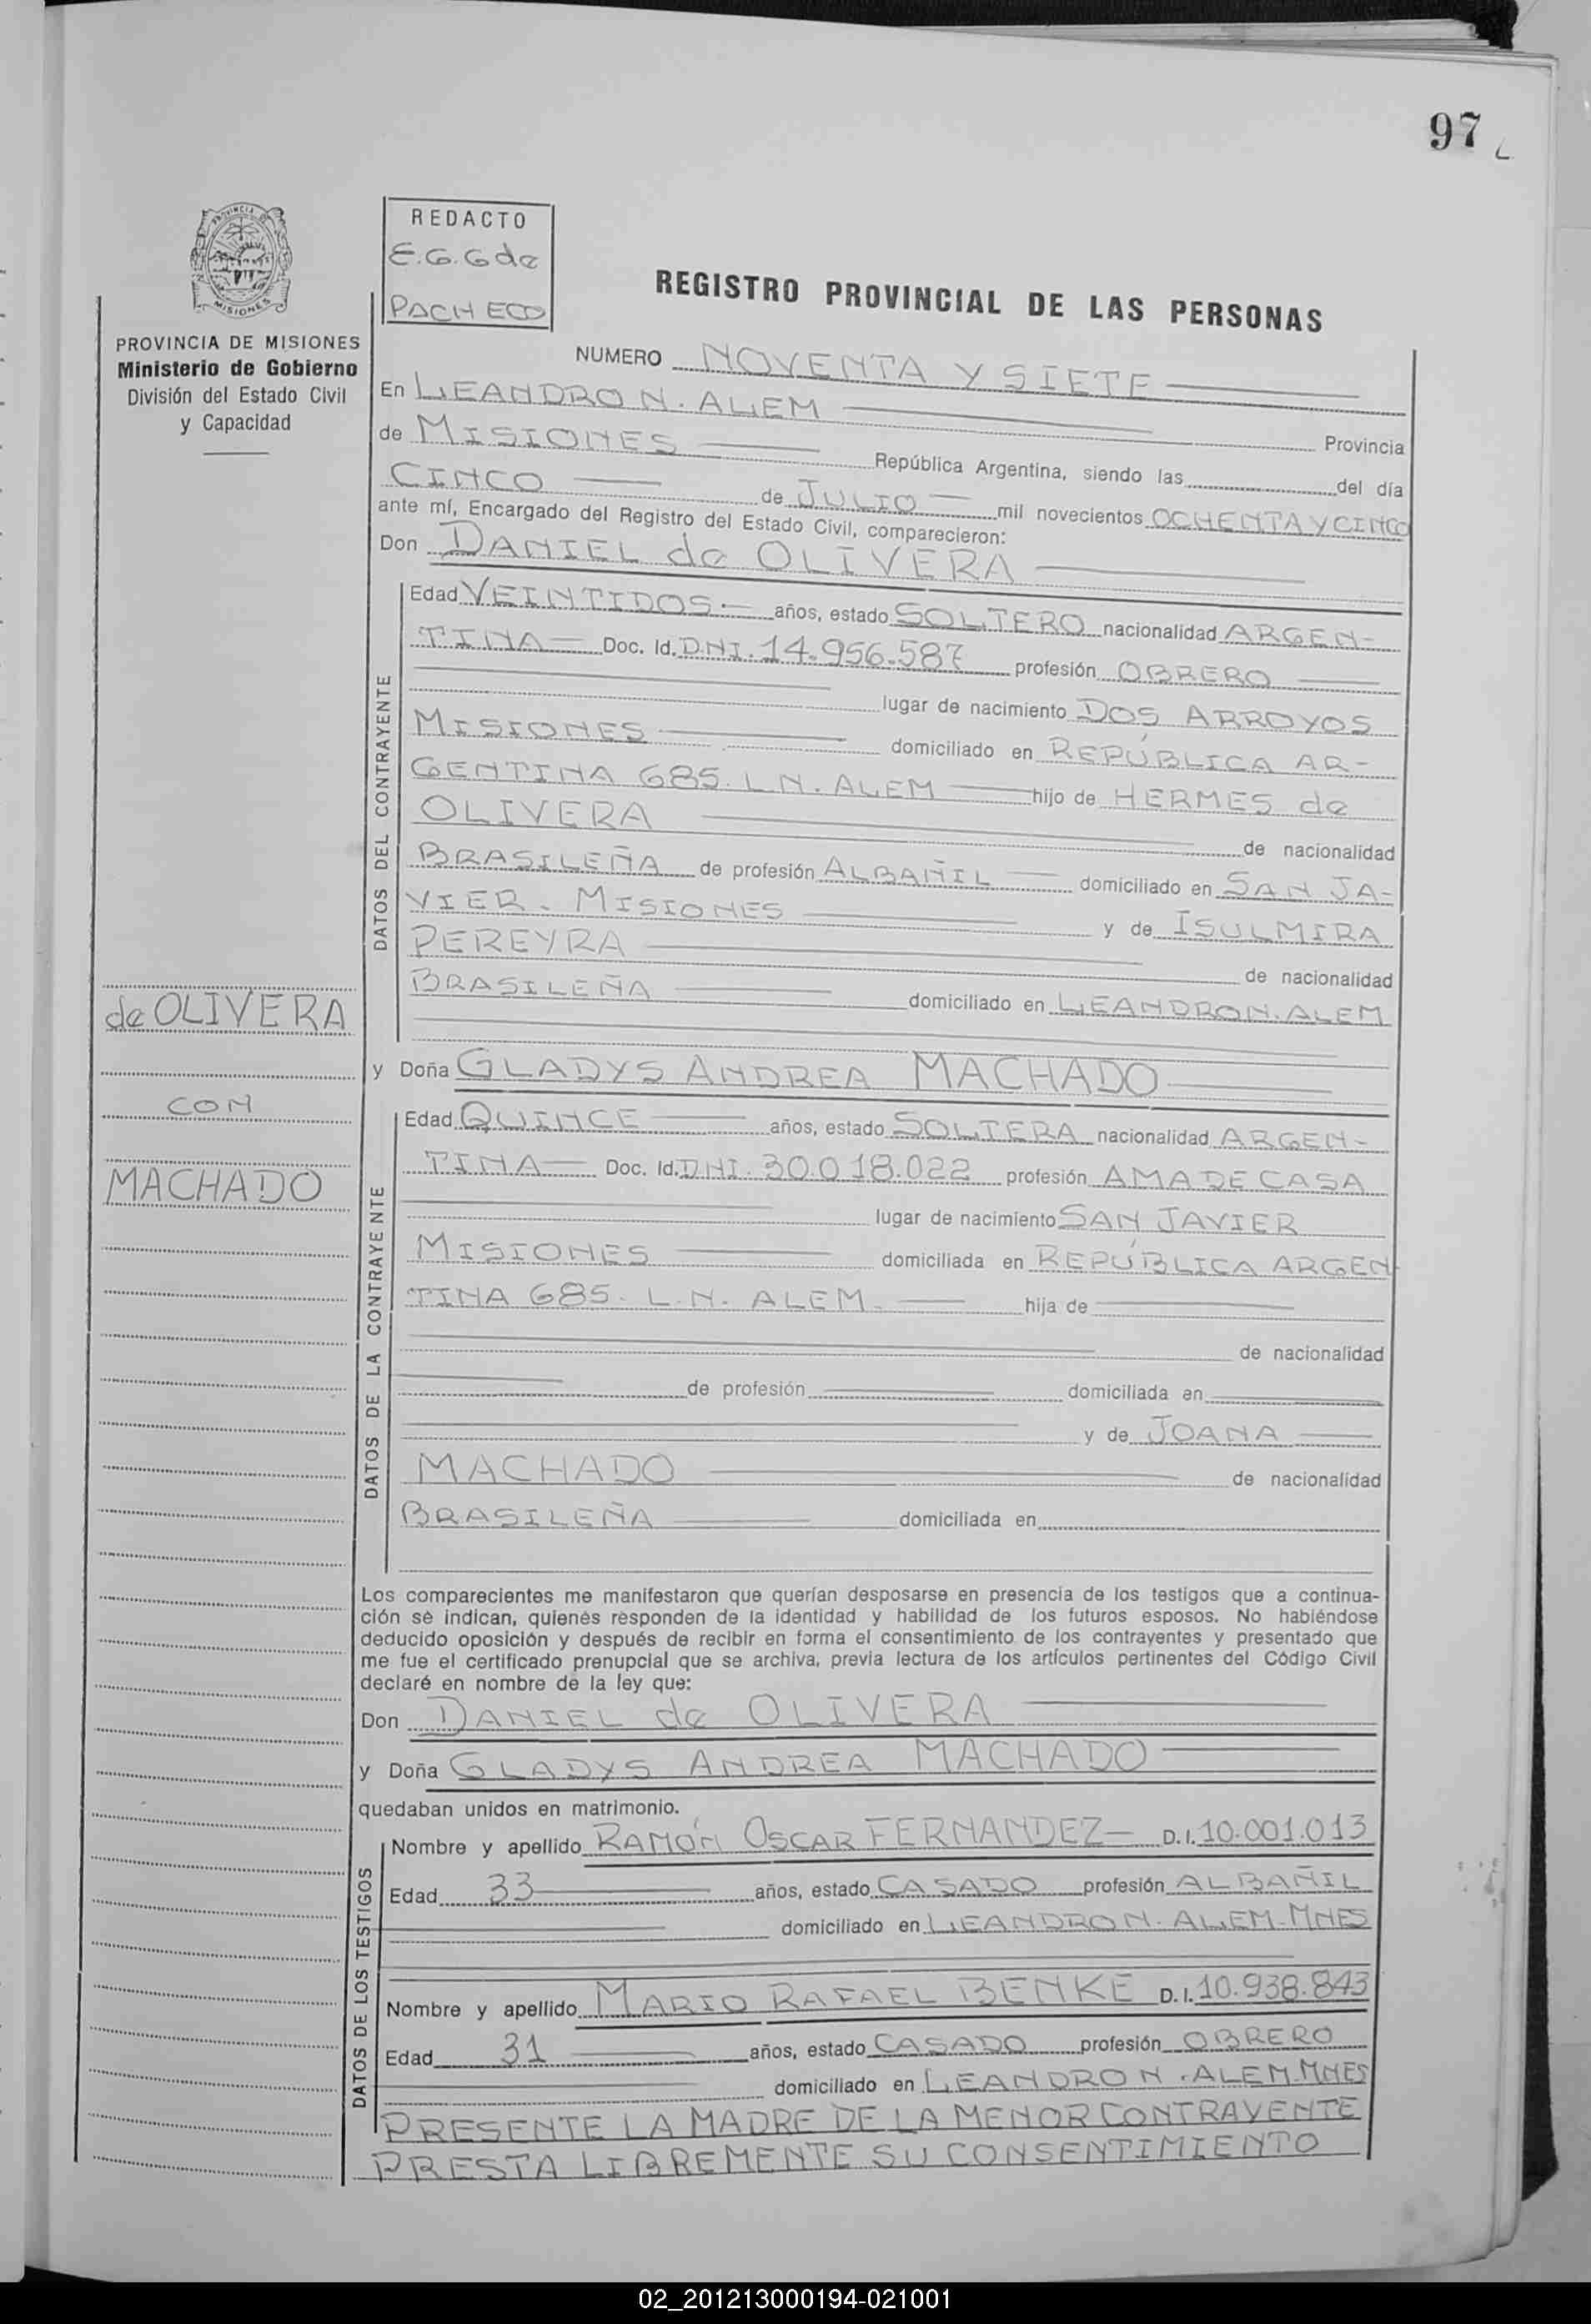 97
REDACTO
E.G.G de
PACHECO
PROVINCIA DE MISIONES
Ministerio de Gobierno
División del Estado Civil
y Capacidad
REGISTRO PROVINCIAL DE LAS PERSONAS
NUMERO NOVENTA Y SIETE
En LEANDRO N. ALEM
Provincia
de MISIONES República Argentina, siendo las del día
CINCO de JULIO mil novecientos OCHENTA Y CINCO
ante mí, Encargado del Registro del Estado Civil, comparecieron:
Don DANIEL de OLIVERA
DATOS DEL CONTRAYENTE
Edad VEINTIDOS años, estado SOLTERO nacionalidad ARGEN-
TINA Doc. Id. D.N.I. 14.956.587 profesión OBRERO
lugar de nacimiento DOS ARROYOS
MISIONES domiciliado en REPÚBLICA AR-
GENTINA 685. L.N. ALEM hijo de HERMES de
OLIVERA de nacionalidad
BRASILEÑA de profesión ALBAÑIL domiciliado en SAN JA-
VIER. MISIONES y de ISULMIRA
PEREYRA de nacionalidad
BRASILEÑA domiciliado en LEANDRO N. ALEM
de OLIVERA
CON
MACHADO
y Doña GLADYS ANDREA MACHADO
DATOS DE LA CONTRAYENTE
Edad QUINCE años, estado SOLTERA nacionalidad ARGEN-
TINA Doc. Id. D.N.I. 30.018.022 profesión AMA DE CASA
lugar de nacimiento SAN JAVIER
MISIONES domiciliada en REPÚBLICA ARGEN
TINA 685. L.N. ALEM. hija de
de nacionalidad
de profesión domiciliada en
y de JOANA
MACHADO de nacionalidad
BRASILEÑA domiciliada en
Los comparecientes me manifestaron que querían desposarse en presencia de los testigos que a continua-
ción se indican, quienes responden de la identidad y habilidad de los futuros esposos. No habiéndose
deducido oposición y después de recibir en forma el consentimiento de los contrayentes y presentado que
me fue el certificado prenupcial que se archiva, previa lectura de los artículos pertinentes del Código Civil
declaré en nombre de la ley que:
Don DANIEL de OLIVERA
y Doña GLADYS ANDREA MACHADO
quedaban unidos en matrimonio.
DATOS DE LOS TESTIGOS
Nombre y apellido RAMÓN OSCAR FERNANDEZ D.I. 10.001.013
Edad 33 años, estado CASADO profesión ALBAÑIL
domiciliado en LEANDRO N. ALEM-MNES
Nombre y apellido MARIO RAFAEL BENKE D.I. 10.938.843
Edad 31 años, estado CASADO profesión OBRERO
domiciliado en LEANDRO N. ALEM-MNES
PRESENTE LA MADRE DE LA MENOR CONTRAYENTE
PRESTA LIBREMENTE SU CONSENTIMIENTO
02_201213000194-021001